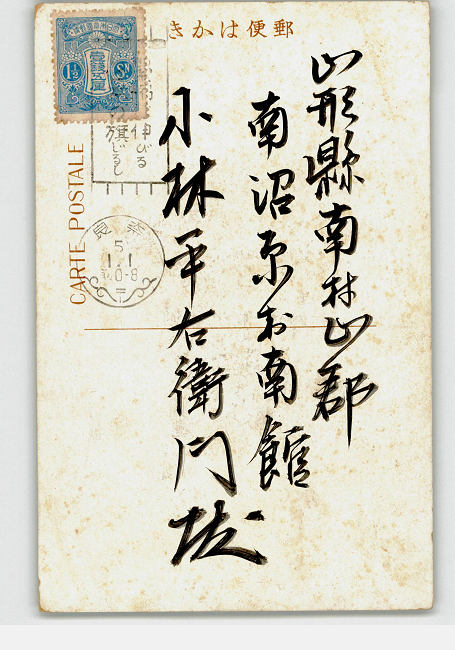 郵便はかき
山形縣南村山郡
南沼原村南館
小林平右衛門殿
CARTE POSTALE
1½ Sn
伸びる
旗じるし
5
1.1
0-8